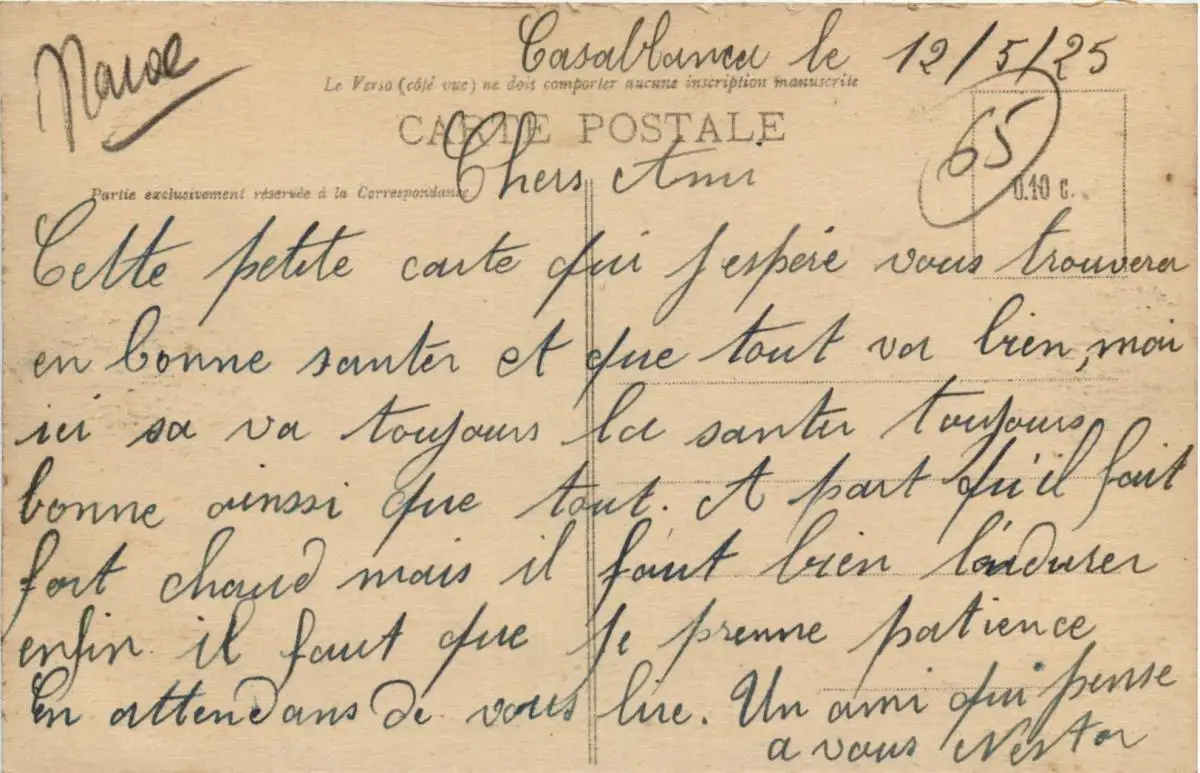 Maroc
Casablanca le 12/5/25
Le Verso (côté vue) ne doit comporter aucune inscription manuscrite
CARTE POSTALE
65
0.10 c.
Chers Ami
Partie exclusivement réservée à la Correspondance
Cette petite carte qui j'espéré vous trouvera
en bonne santer et que tout va bien, moi
ici sa va toujours la santer toujours
bonne ainssi que tout. A part qu'il fait
fort chaud mais il faut bien l'andurer
enfin il faut que je prenne patience
En attendans de vous lire. Un ami qui pense
a vous Nestor